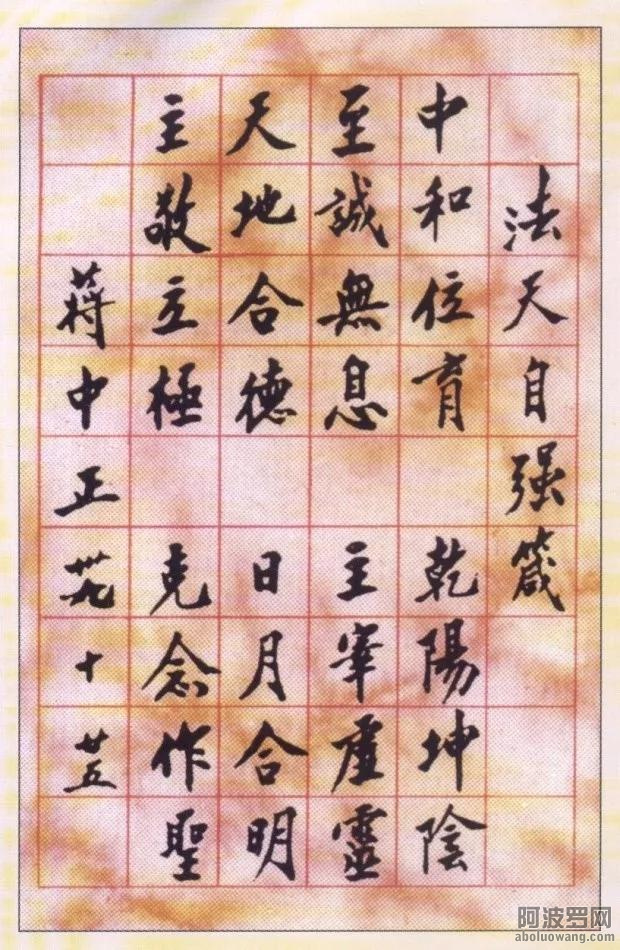 法天自强箴
中和位育 乾陽坤陰
至誠無息 主宰虛靈
天地合德 日月合明
主敬立極 克念作聖
蔣中正 卅九 十 廿五
阿波罗网
aboluowang.com